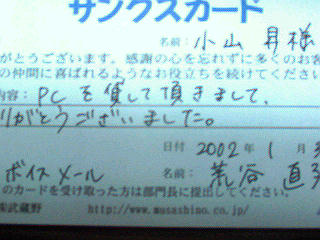 サンクスカード
名前: 小山 昇 様
がとうございます。感謝の心を忘れずに多くのお客
の仲間に喜ばれるようなお役立ちを続けてください
内容: PCを貸して頂きまして、
りがとうございました。
日付 2002年 1月
ボイスメール 名前: 荒谷 直
のカードを受け取った方は部門長に提出してください。
武蔵野 http://www.musashino.co.jp/